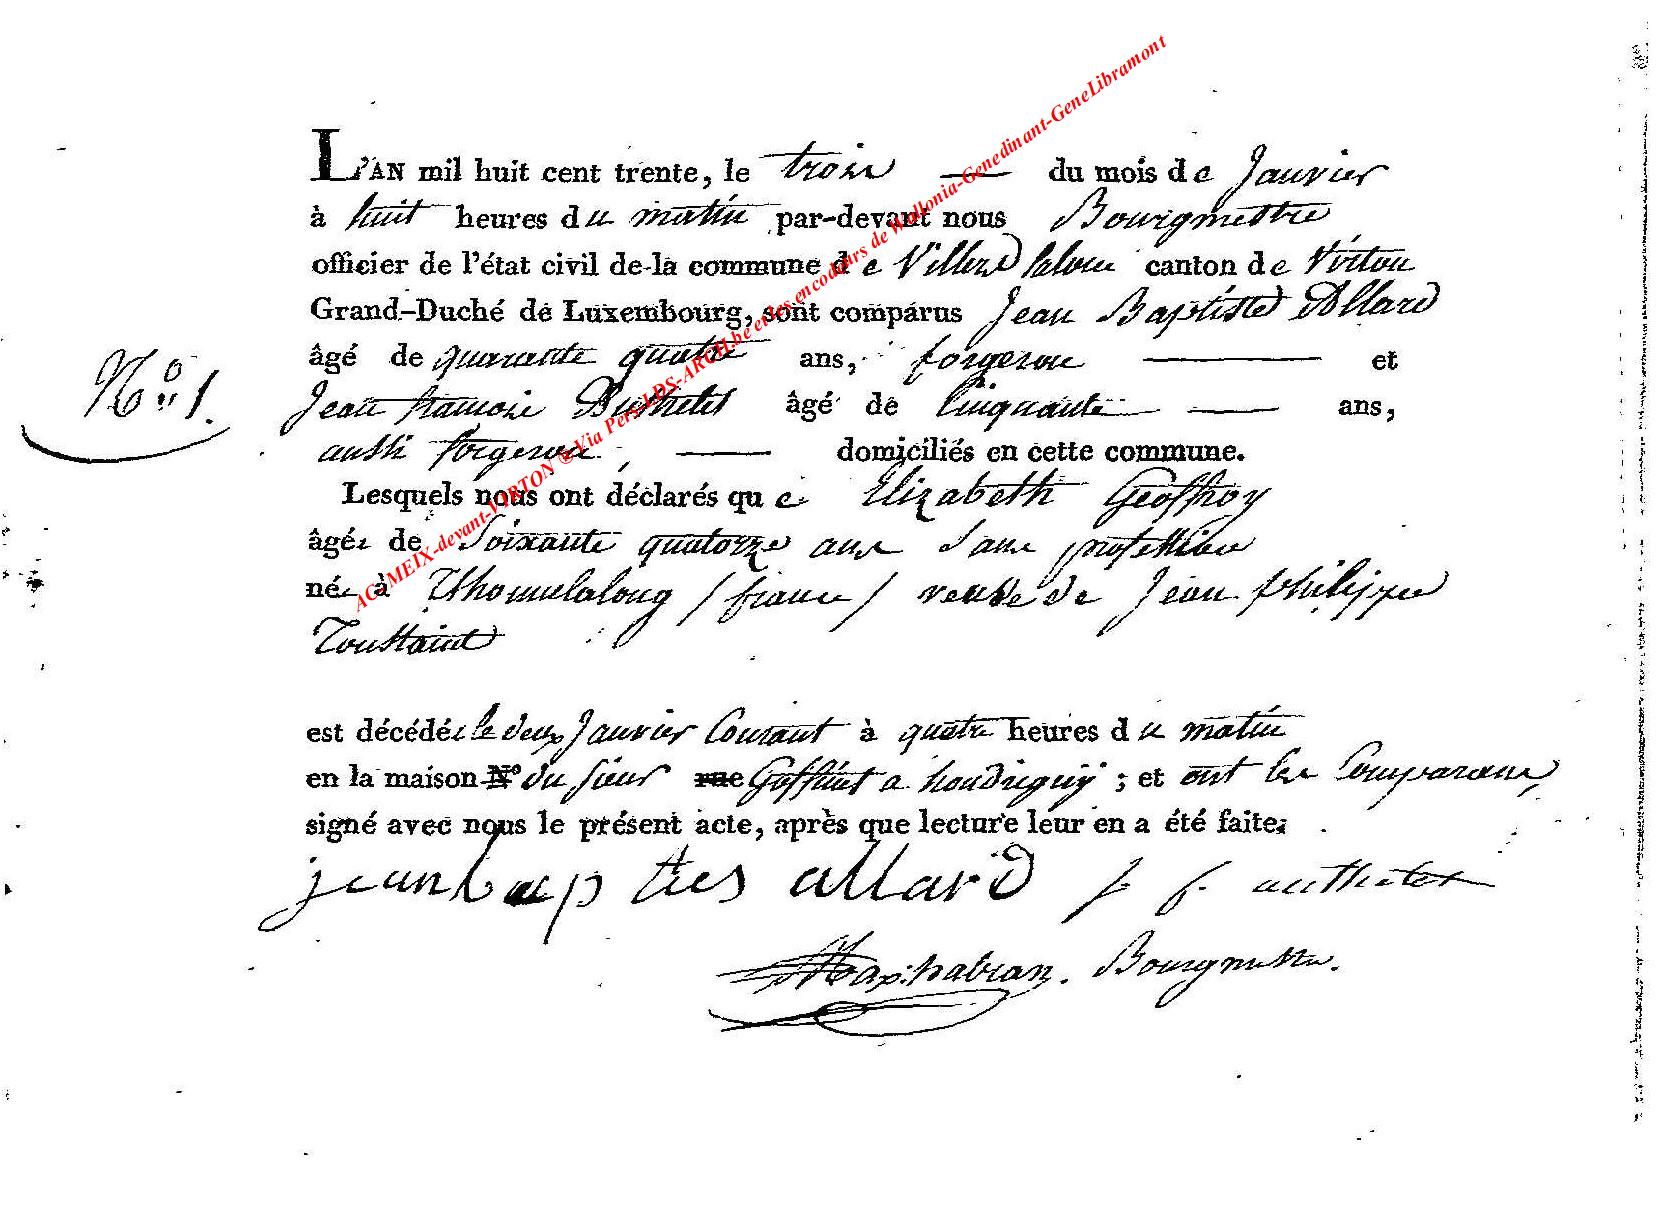 L'AN mil huit cent trente, le trois du mois de Janvier
à huit heures du matin par-devant nous Bourgmestre
officier de l'état civil de la commune de Villers Laloue canton de Virton
Grand-Duché de Luxembourg, sont comparus Jean Baptiste Allard
âgé de quarante quatre ans, forgeron et
N° 1.
Jean francois âgé de Cinquante ans,
aussi forgeron, domiciliés en cette commune.
Lesquels nous ont déclarés que Elizabeth Geoffroy
âgée de Soixante quatorze ans Sans profession
née à Thonnelalong / france / veuve de Jean philippe
Toussaint
est décédée le deux Janvier Courant à quatre heures du matin
en la maison N° du Sieur rue Goffinet a houdrigny ; et ont les Comparans,
signé avec nous le présent acte, après que lecture leur en a été faite.
jean baptties allard j f. authelet
Bourgmestre.
AC-MEIX-devant-VIRTON ® Via Pers-LDS-ARCH.be et les encodeurs de Wallonia-Genedinant-GeneLibramont